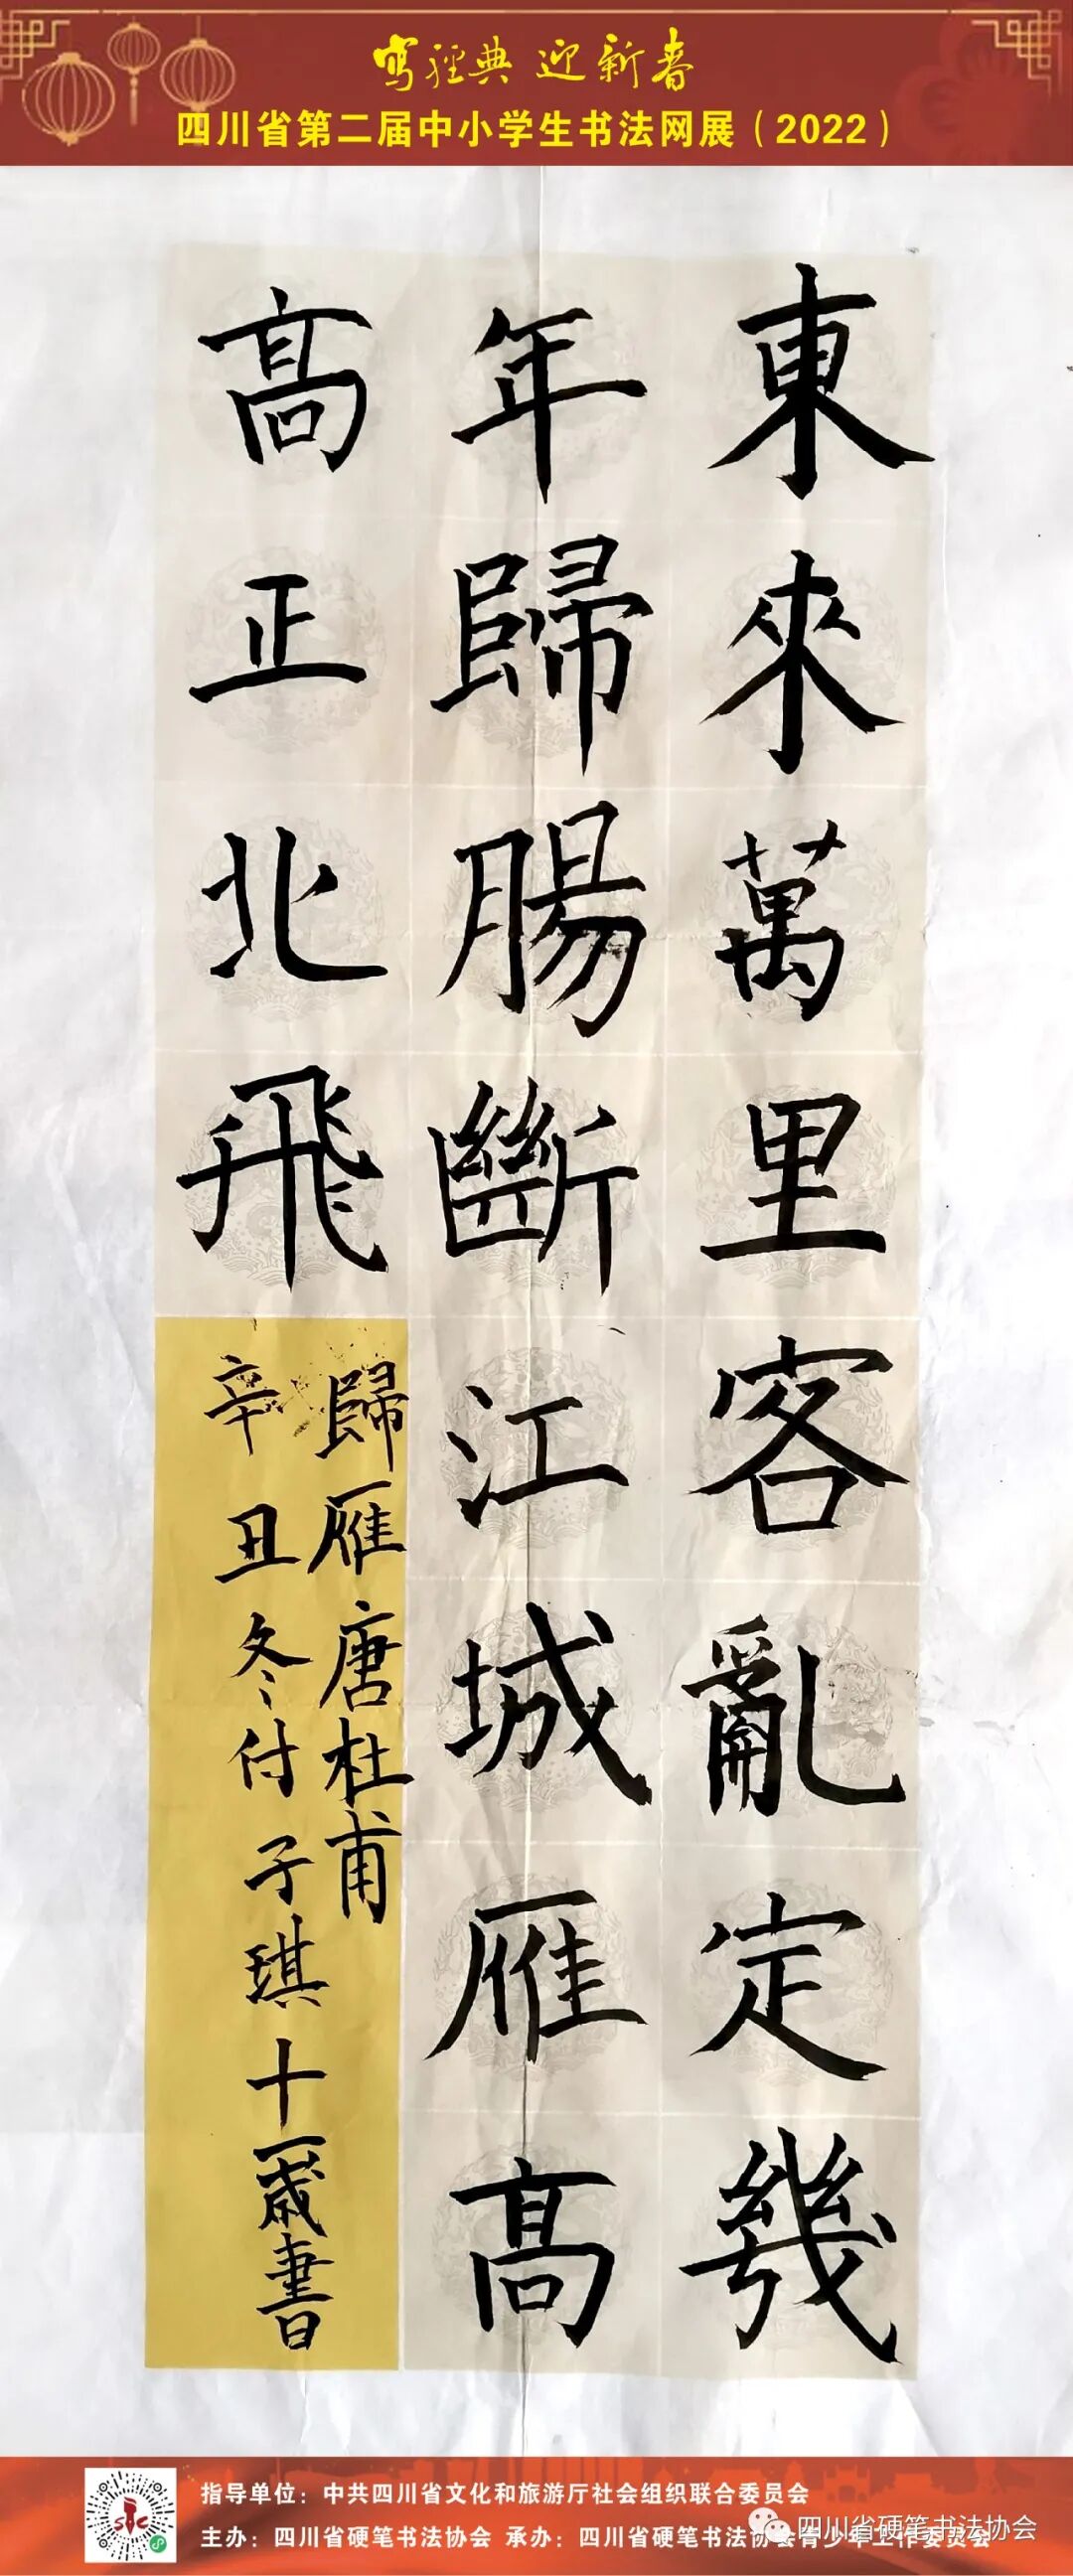 写经典 迎新春
四川省第二届中小学生书法网展（2022）
東來萬里客亂定幾
年歸腸斷江城雁高
高正北飛
歸雁唐杜甫
辛丑冬付子琪十一歲書
指导单位：中共四川省文化和旅游厅社会组织联合委员会
主办：四川省硬笔书法协会 承办：四川省硬笔书法协会青少年工作委员会
四川省硬笔书法协会